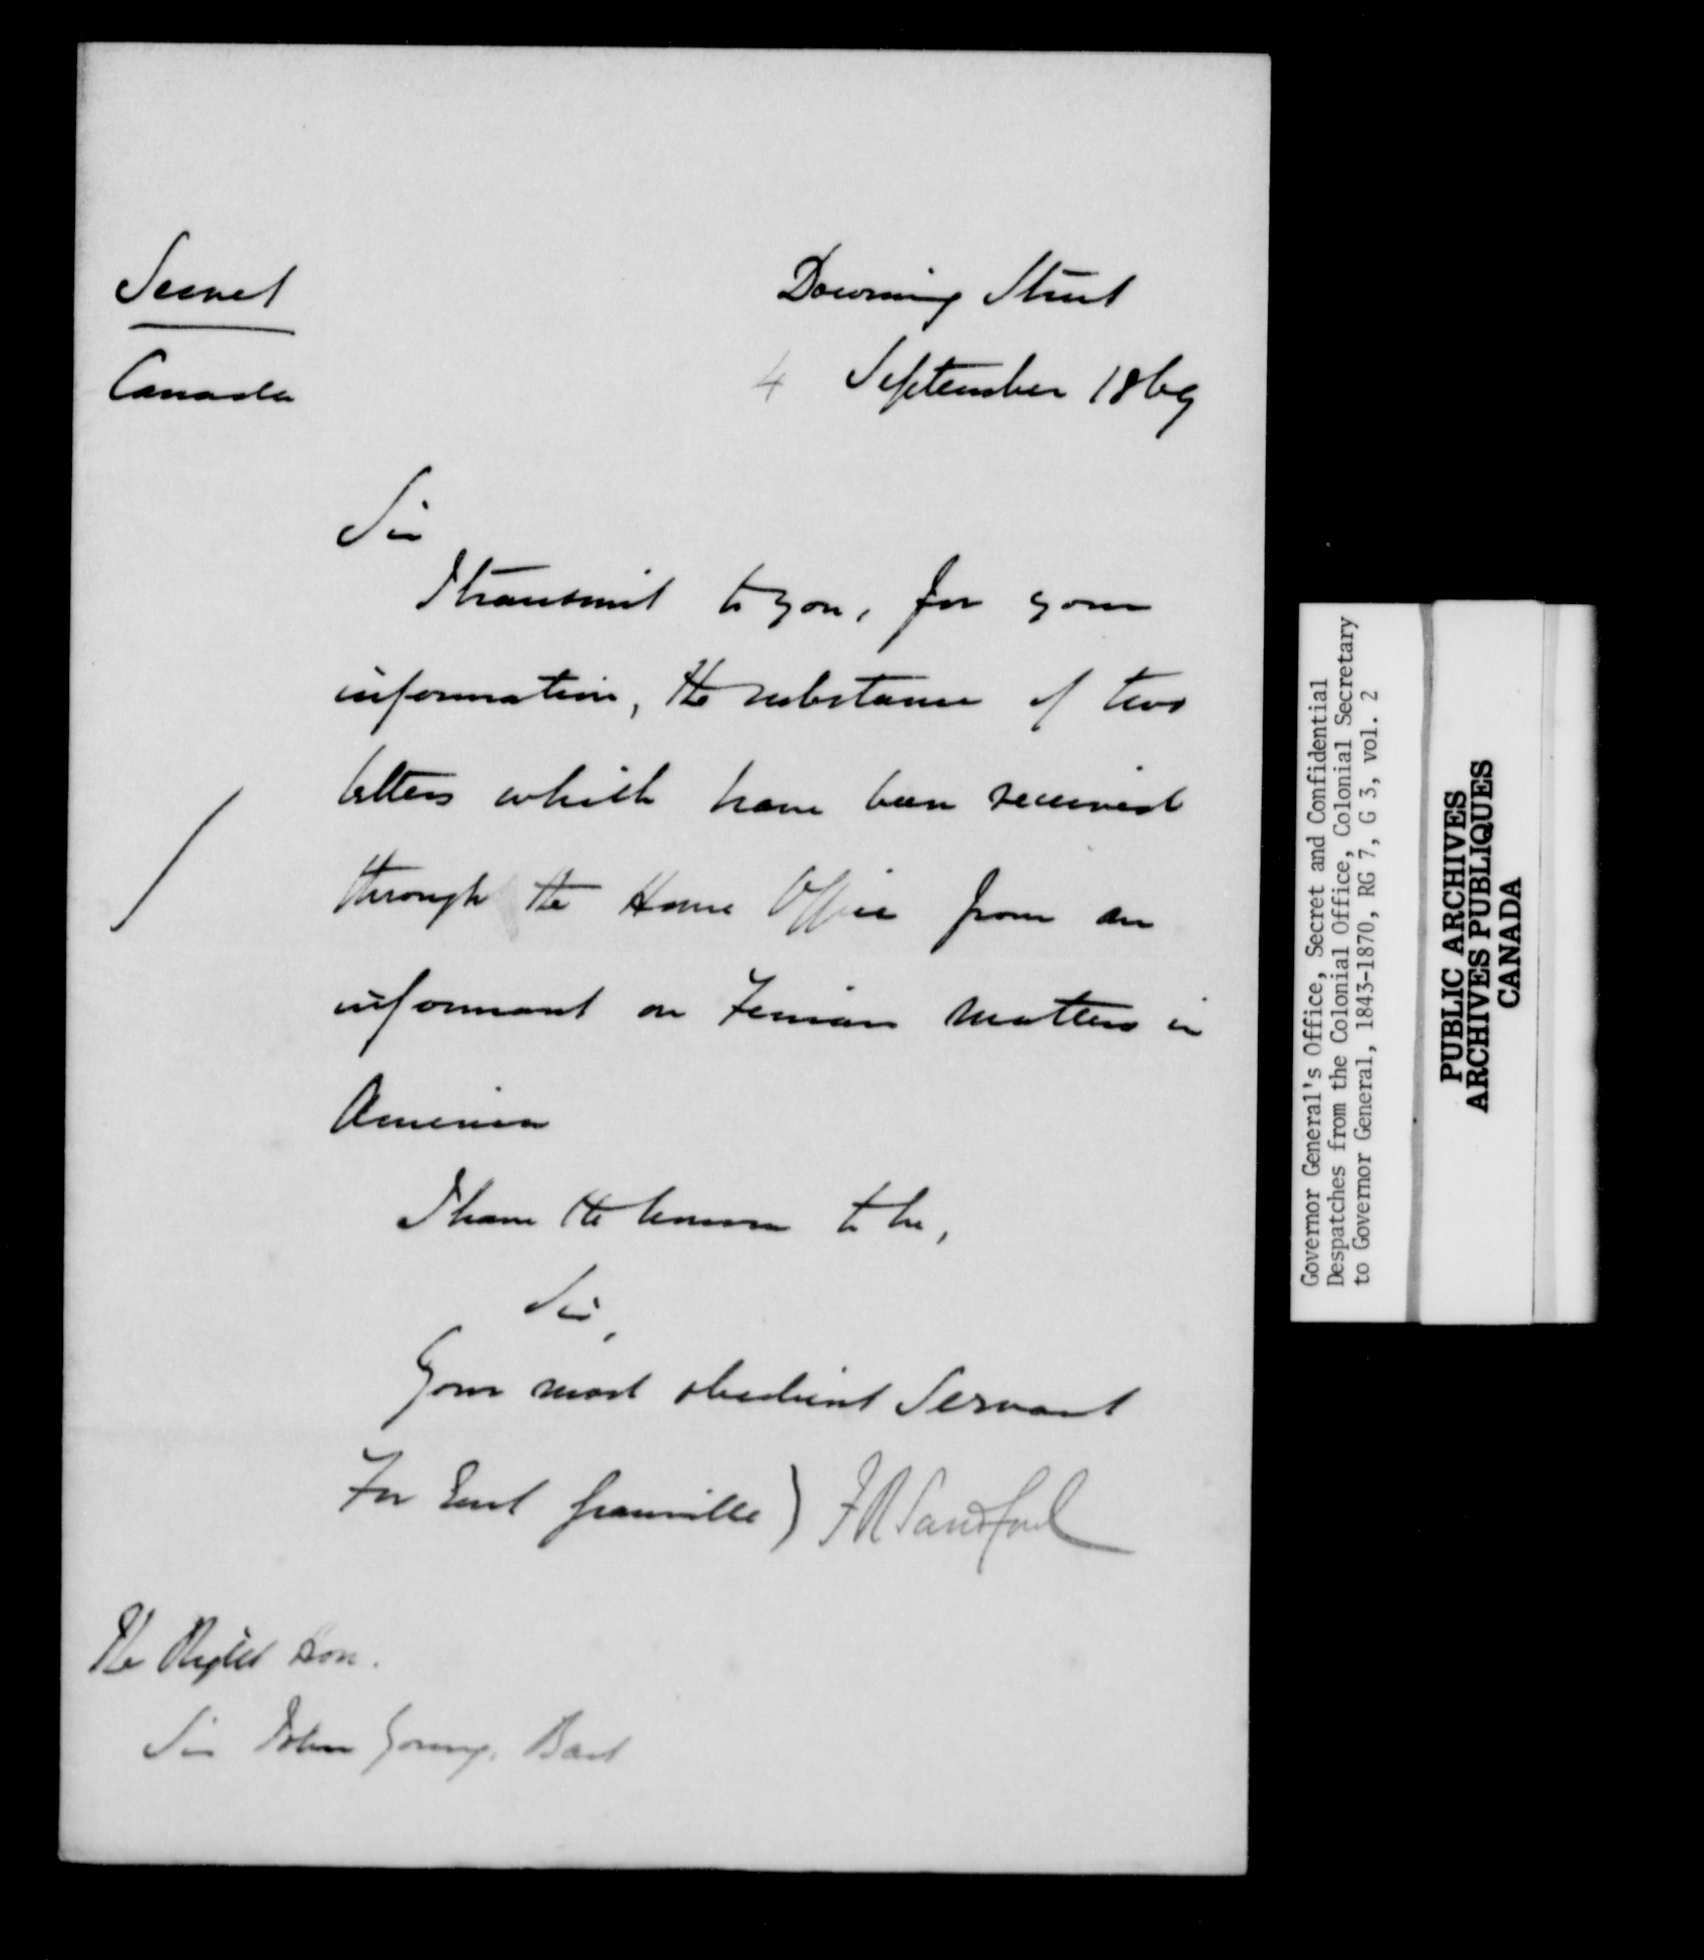 Secret
Canada
Downing Street
4 September 1869
Sir
I transmit to you, for your
information, the substance of two
letters which have been received
through the Home Office from an
informant on Fenian matters in
America
I have the honour to be,
Sir,
Your most obedient Servant
For Earl Granville) F R Sandford
The Right Hon.
Sir John Young, Bart
Governor General's Office, Secret and Confidential
Despatches from the Colonial Office, Colonial Secretary
to Governor General, 1843-1870, RG 7, G 3, vol. 2
PUBLIC ARCHIVES
ARCHIVES PUBLIQUES
CANADA